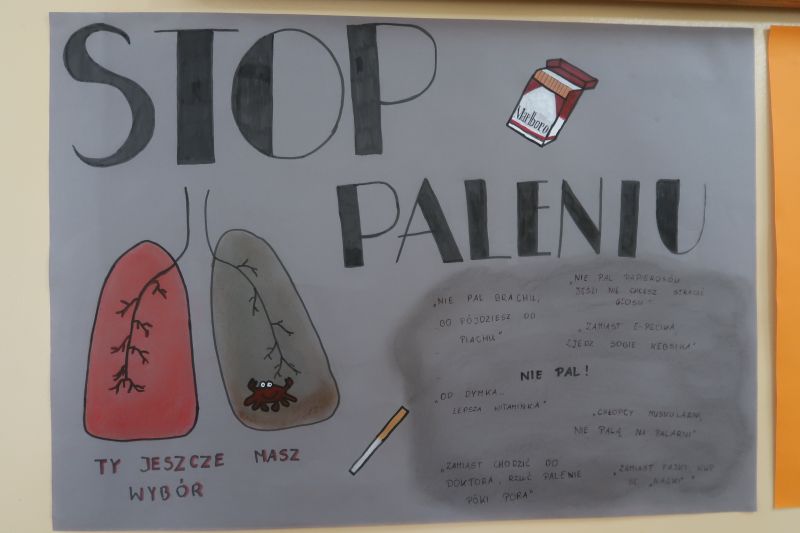 STOP
Marlboro
PALENIU
„NIE PAL BRACHU,
BO PÓJDZIESZ DO
PIACHU"
„NIE PAL PAPIEROSÓW
JEŚLI NIE CHCESZ STRACIĆ
GŁOSU"
„ZAMIAST E-PECIKA
ZJEDZ SOBIE KEBSIKA"
NIE PAL!
„OD DYMKA..
LEPSZA WITAMINKA"
„CHŁOPCY MUSKULARNI,
NIE PALĄ NA PALARNI"
„ZAMIAST CHODZIĆ DO
DOKTORA, RZUĆ PALENIE
PÓKI PORA"
„ZAMIAST FAJKI KUP
SE „NAJKI""
TY JESZCZE MASZ
WYBÓR